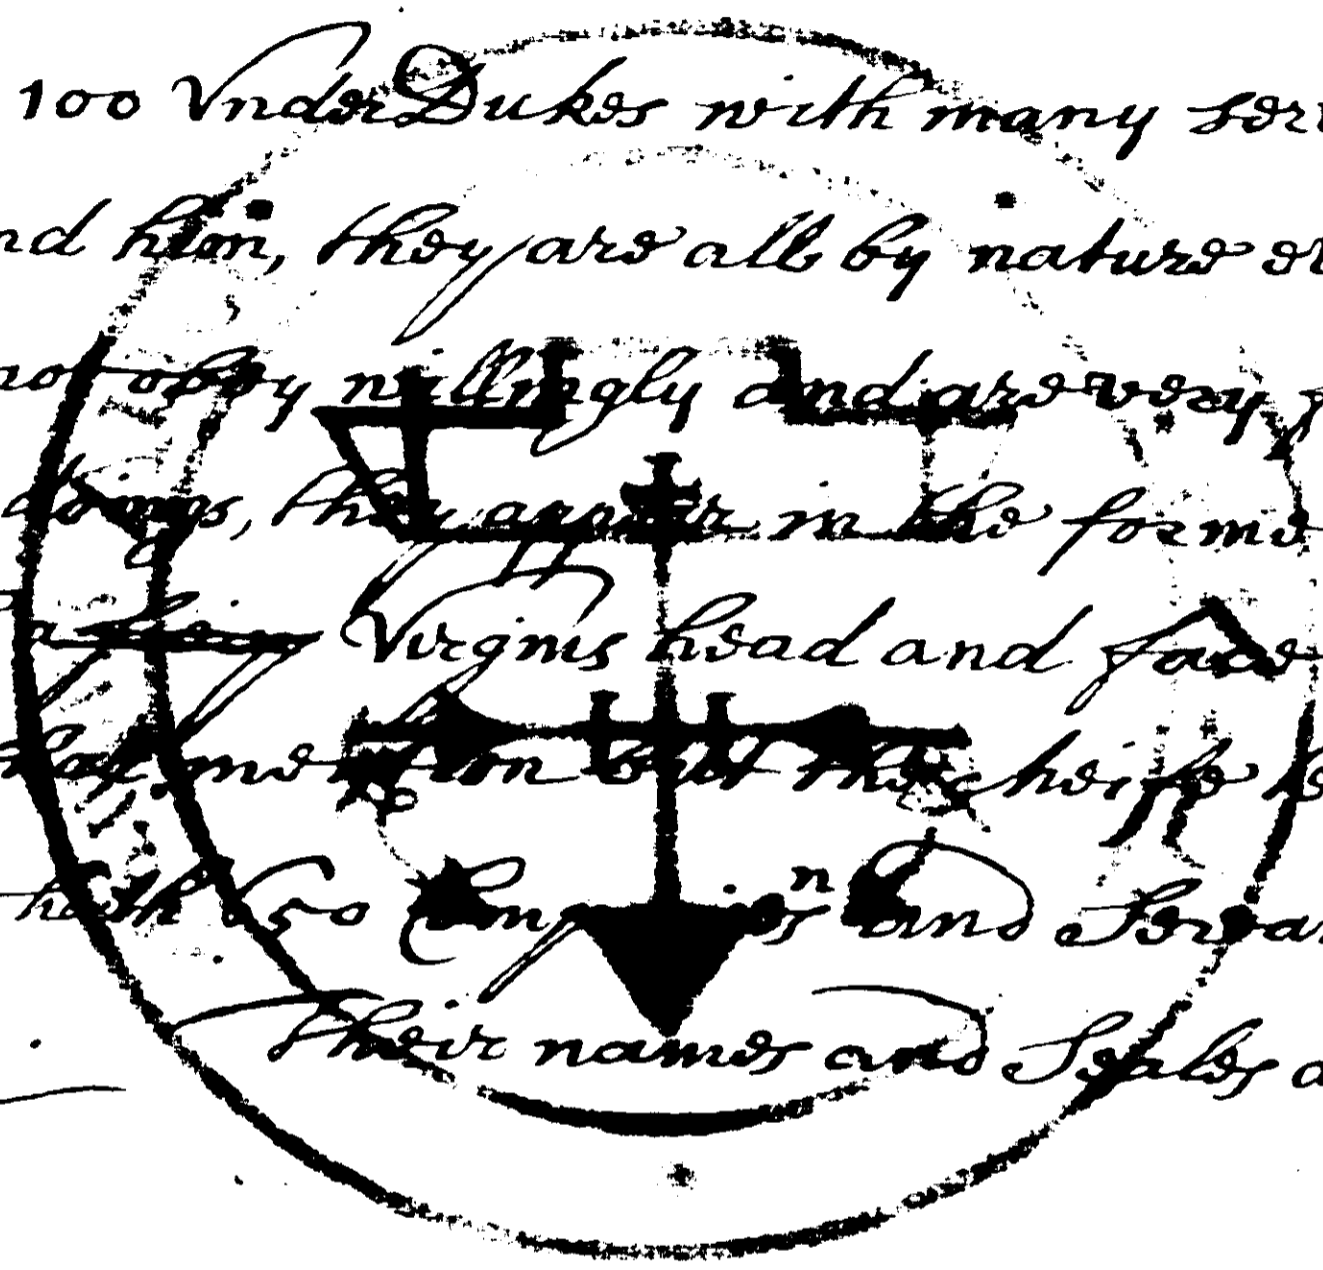 100 Vnder Dukes with many
him, they are all by nature
not obey willingly and are very
doings, they appear in the forme
a Virgins head and face
mention but the cheife
hath 650 Companiens and
their names and Seales